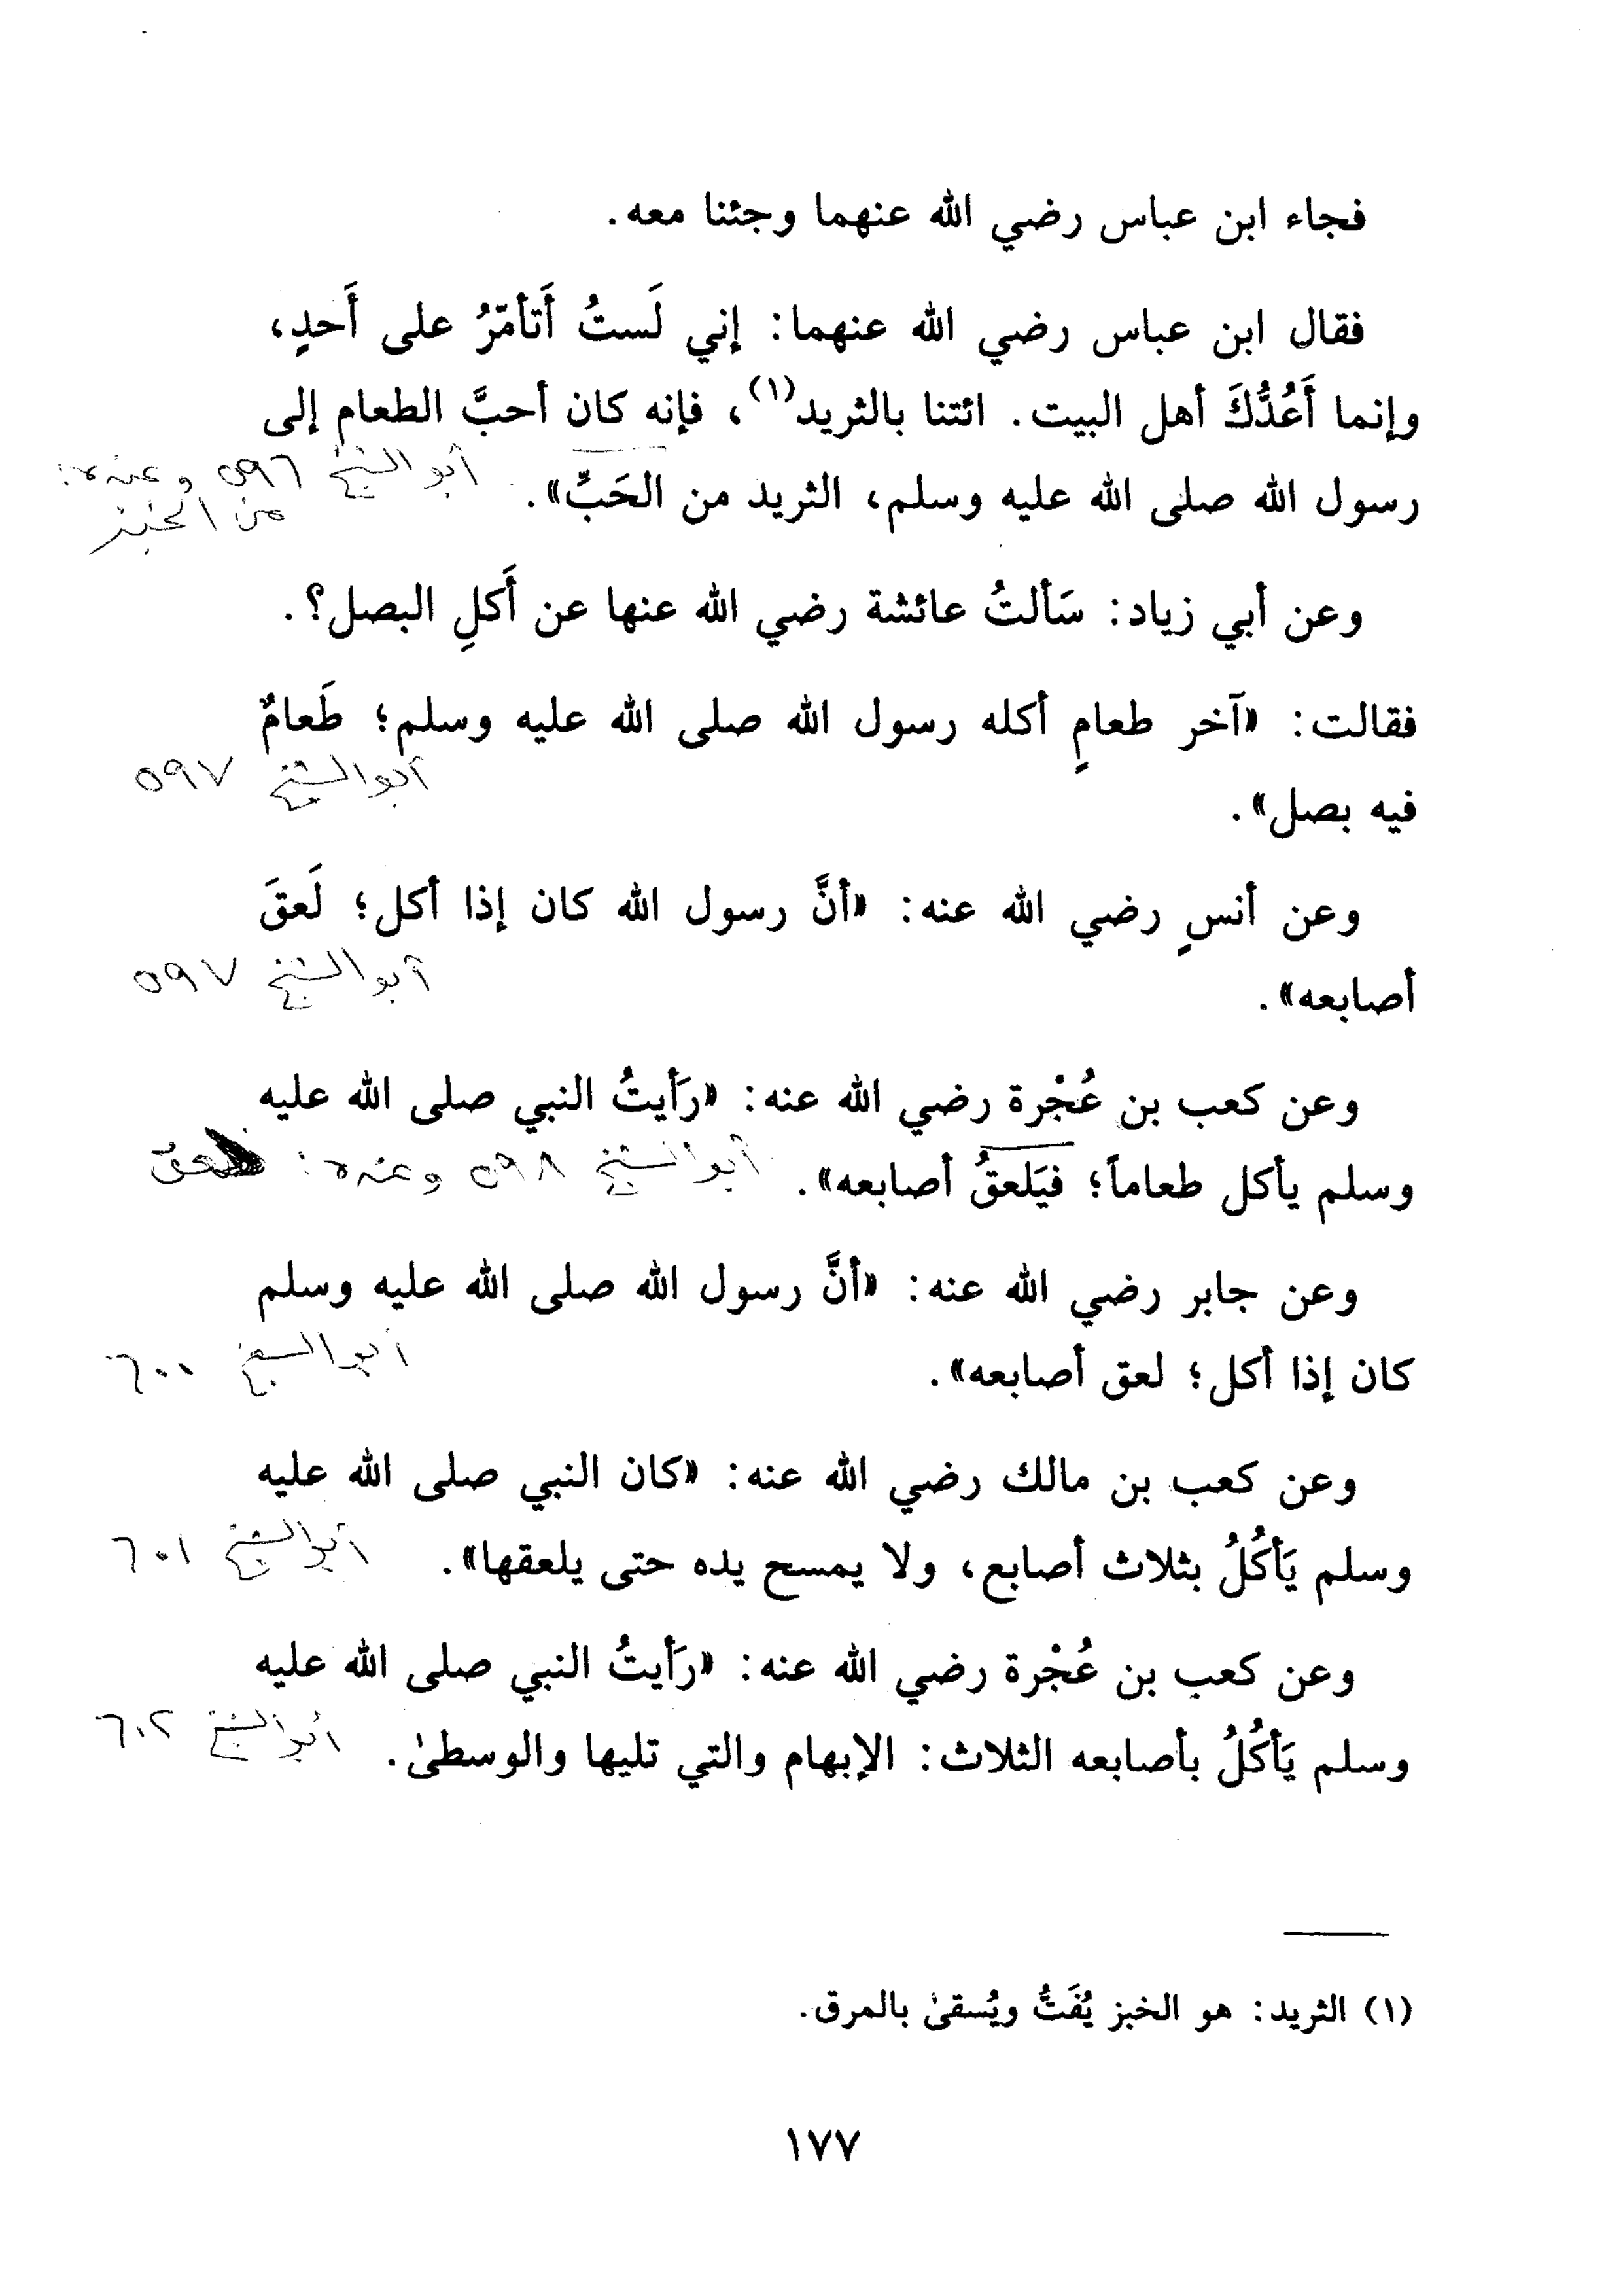 فجاء ابن عباس رضي الله عنهما وجئنا معه.
فقال ابن عباس رضي الله عنهما: إني لَستُ أَتأمّرُ على أَحدٍ،
وإنما أَعُدُّكَ أهل البيت. ائتنا بالثريد(١)، فإنه كان أحبَّ الطعام إلى
أبو الشيخ ٥٩٦ وعنده:
من الخبز
رسول الله صلى الله عليه وسلم، الثريد من الحَبِّ».
وعن أبي زياد: سَألتُ عائشة رضي الله عنها عن أَكلِ البصل؟.
فقالت: «آخر طعامٍ أكله رسول الله صلى الله عليه وسلم؛ طَعامٌ
أبو الشيخ ٥٩٧
فيه بصل».
وعن أنسٍ رضي الله عنه: «أنَّ رسول الله كان إذا أكل؛ لَعقَ
أبو الشيخ ٥٩٧
أصابعه».
وعن كعب بن عُجْرة رضي الله عنه: «رَأيتُ النبي صلى الله عليه
وسلم يأكل طعاماً؛ فيَلعقُ أصابعه».
أبو الشيخ ٥٩٨ وعنده:
وعن جابر رضي الله عنه: «أنَّ رسول الله صلى الله عليه وسلم
كان إذا أكل؛ لعق أصابعه».
أبو الشيخ ٦٠٠
وعن كعب بن مالك رضي الله عنه: «كان النبي صلى الله عليه
وسلم يَأكُلُ بثلاث أصابع، ولا يمسح يده حتى يلعقها».
أبو الشيخ ٦٠١
وعن كعب بن عُجْرة رضي الله عنه: «رَأيتُ النبي صلى الله عليه
وسلم يَأكُلُ بأصابعه الثلاث: الإبهام والتي تليها والوسطىٰ.
أبو الشيخ ٦٠٢
(١) الثريد: هو الخبز يُفَتُّ ويُسقىٰ بالمرق.
١٧٧